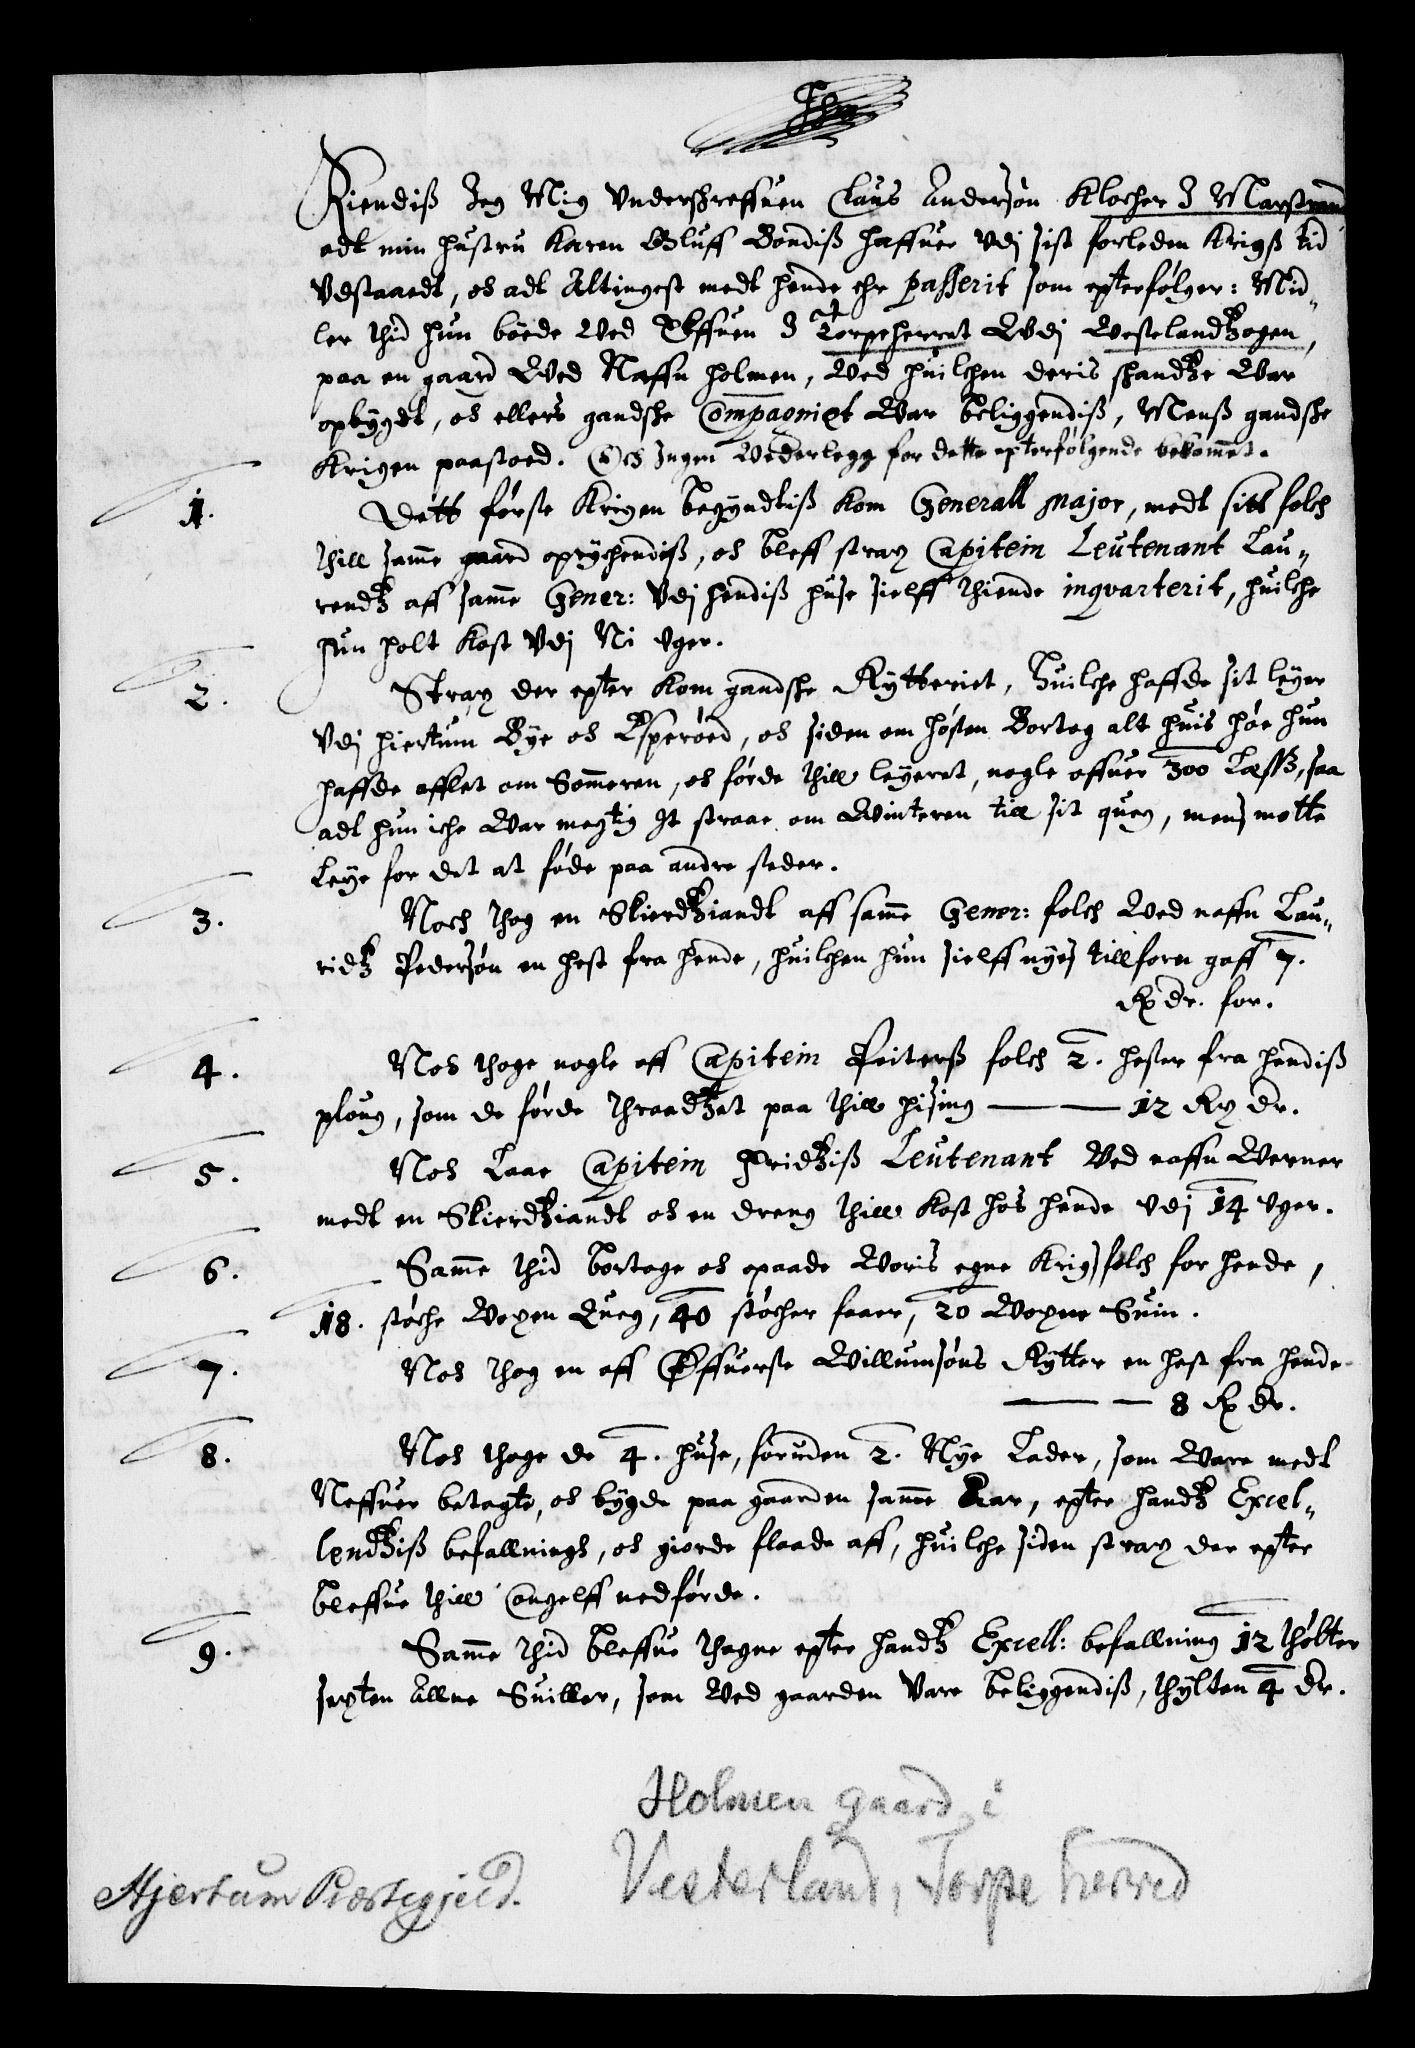 Jhs
Kiendiß Jeg Mig Vnderschreffuen Claus Andersøn Klocher I Marstrand
adt min hustru Karen Oluff Bondiß haffuer Vdj sist forleden Krigß tid
Vdstaaedt, och adt Altingest medt hende ehr passerit som epterfølger: Mid-
ler thid hun boede Ved Elffuen I Torpeherret Vdj Vestelandz ogen,
paa en gaard Ved Naffn Holmen, Ved huilchen deris skandtze Var
opbygdt, och ellers gandsche Compagniet Var beliggendiß, Menß gandsche
Krigen paastoed. Och Ingen Vederlegg for dette epterfølgende bekommet.
1. Dett første Krigen begyndtiß kom Generall Major, medt sitt folch
thill samme gaard oprychendiß, och bleff strax Capitein Leutenant Lau-
rendtz aff samme Gener: Vdj hendiß huse sielff thiende inqvarterit, huilche
hun holt Kost Vdj Ni Vger.
2. Strax der epter kom gandsche Rytteriet, Huilche haffde sit leyer
Vdj Hiertum Bye och Esperøed, och siden om høsten Bortog alt huis høe hun
haffde afflet om Sommeren, och førde thill leyeret, nogle offuer 300 Læsß, saa
adt hun iche Var megtig It straae om Vinteren till sit queg, mens motte
Leye for det at føde paa andre steder.
3. Noch thog en Skierdziandt aff samme Gener: folch Ved naffn Lau-
ridtz Pedersøn en hest fra hende, huilchen hun sielff nyes tillforn gaff 7.
Rx dr. for.
4. Noch thoge nogle aff Capitein Peiterß folch 2. hester fra hendiß
ploug, som de førde thraadzet paa thill Hising — 12 Rx dr.
5. Noch Laae Capitein Fridziß Leutenant Ved naffn Verner
medt en Skierdziandt och en dreng thill Kost hos hende Vdj 14 Vger.
6. Samme thid bortoge och opaade Voris egne Krigsfolch for hende,
18. støche Voxen Queg, 40 støcher faaer, 20 Voxne Suin.
7. Noch thog en aff Øffuerste Villumsøns Rytter en hest fra hende
— — 8 Rx dr.
8. Noch thoge de 4. huse, foruden 2. Nye Lader, som Vare medt
Neffuer betagte, och bygde paa gaarden samme Aar, epter handtz Excel-
lendziß befallnings, och giorde flaade aff, huilche siden strax der epter
bleffue thill Congelff nedførde.
9. Samme thid bleffue thagne epter handtz Excell: befallning 12 thølter
sexten Allne Suiller, som Ved gaarden Vare beliggendiß, thylten 4 Dr.
Holmen gaard i
Vesterland, Torpe herred
Hjertum Præstegjeld.